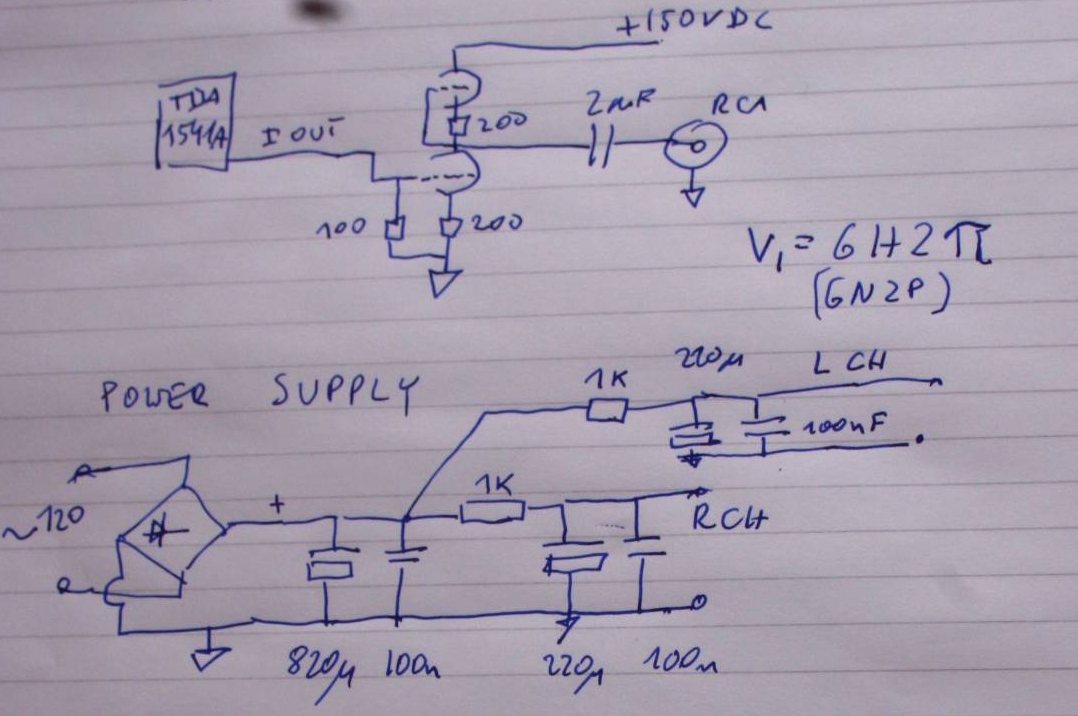 +150VDC
TDA
1541A
I OUT
200
2µF
RCA
100
200
V1 = 6H2П
(6N2P)
POWER SUPPLY
1K
220µ
L CH
100nF
~120
+
1K
R CH
820µ
100n
220µ
100n